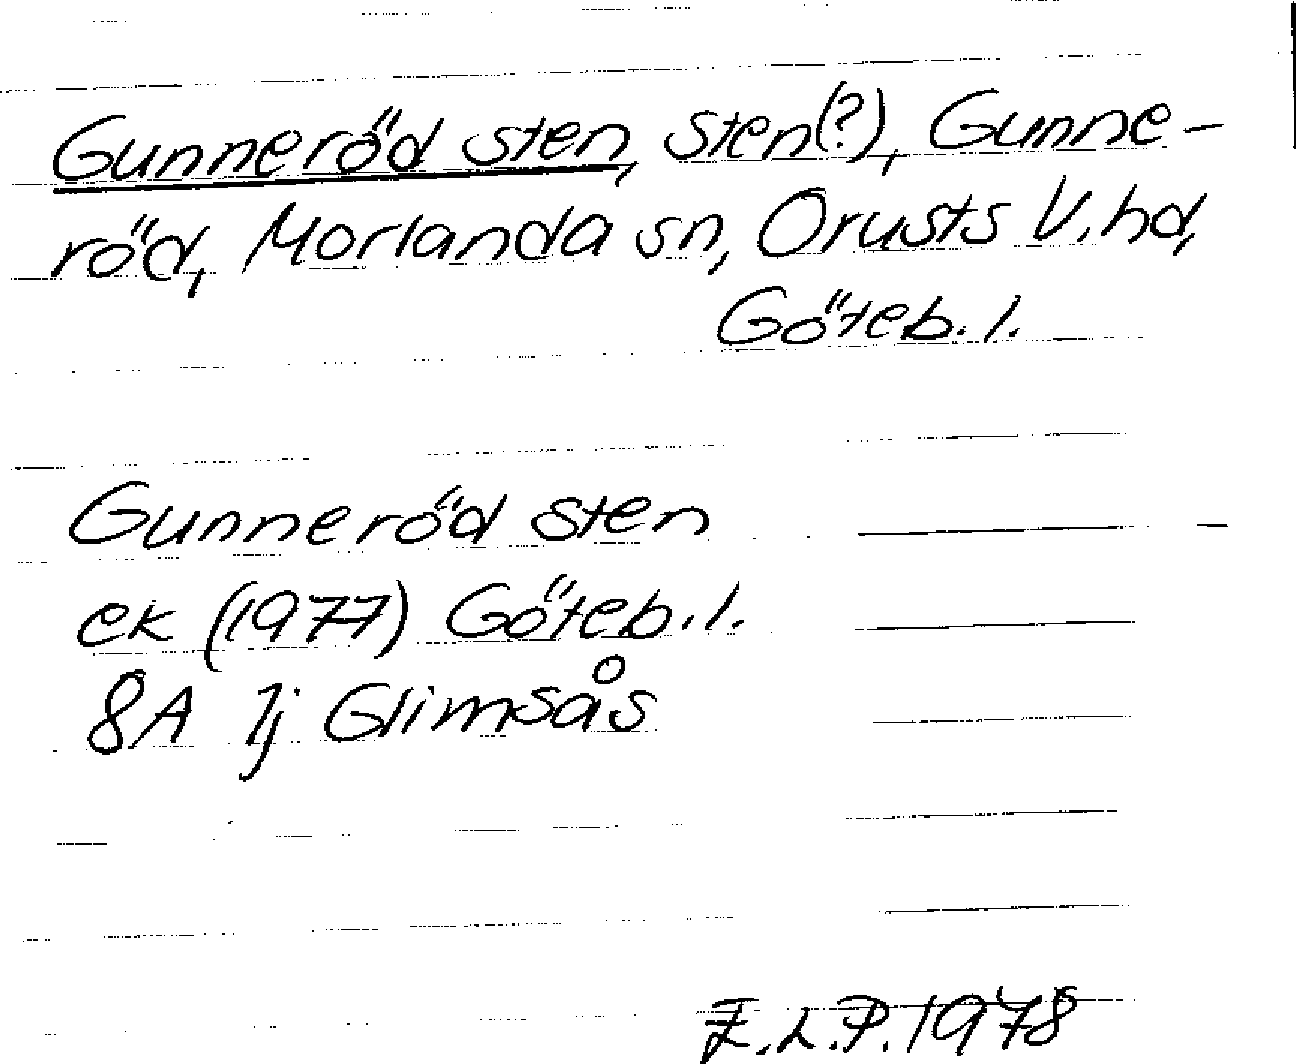 Gunneröd sten, sten(?), Gunne-
röd, Morlanda sn, Orusts V. hd,
Göteb. l.
Gunneröd sten
ek (1977) Göteb. l.
8A 1j Glimsås
F.L.P. 1978